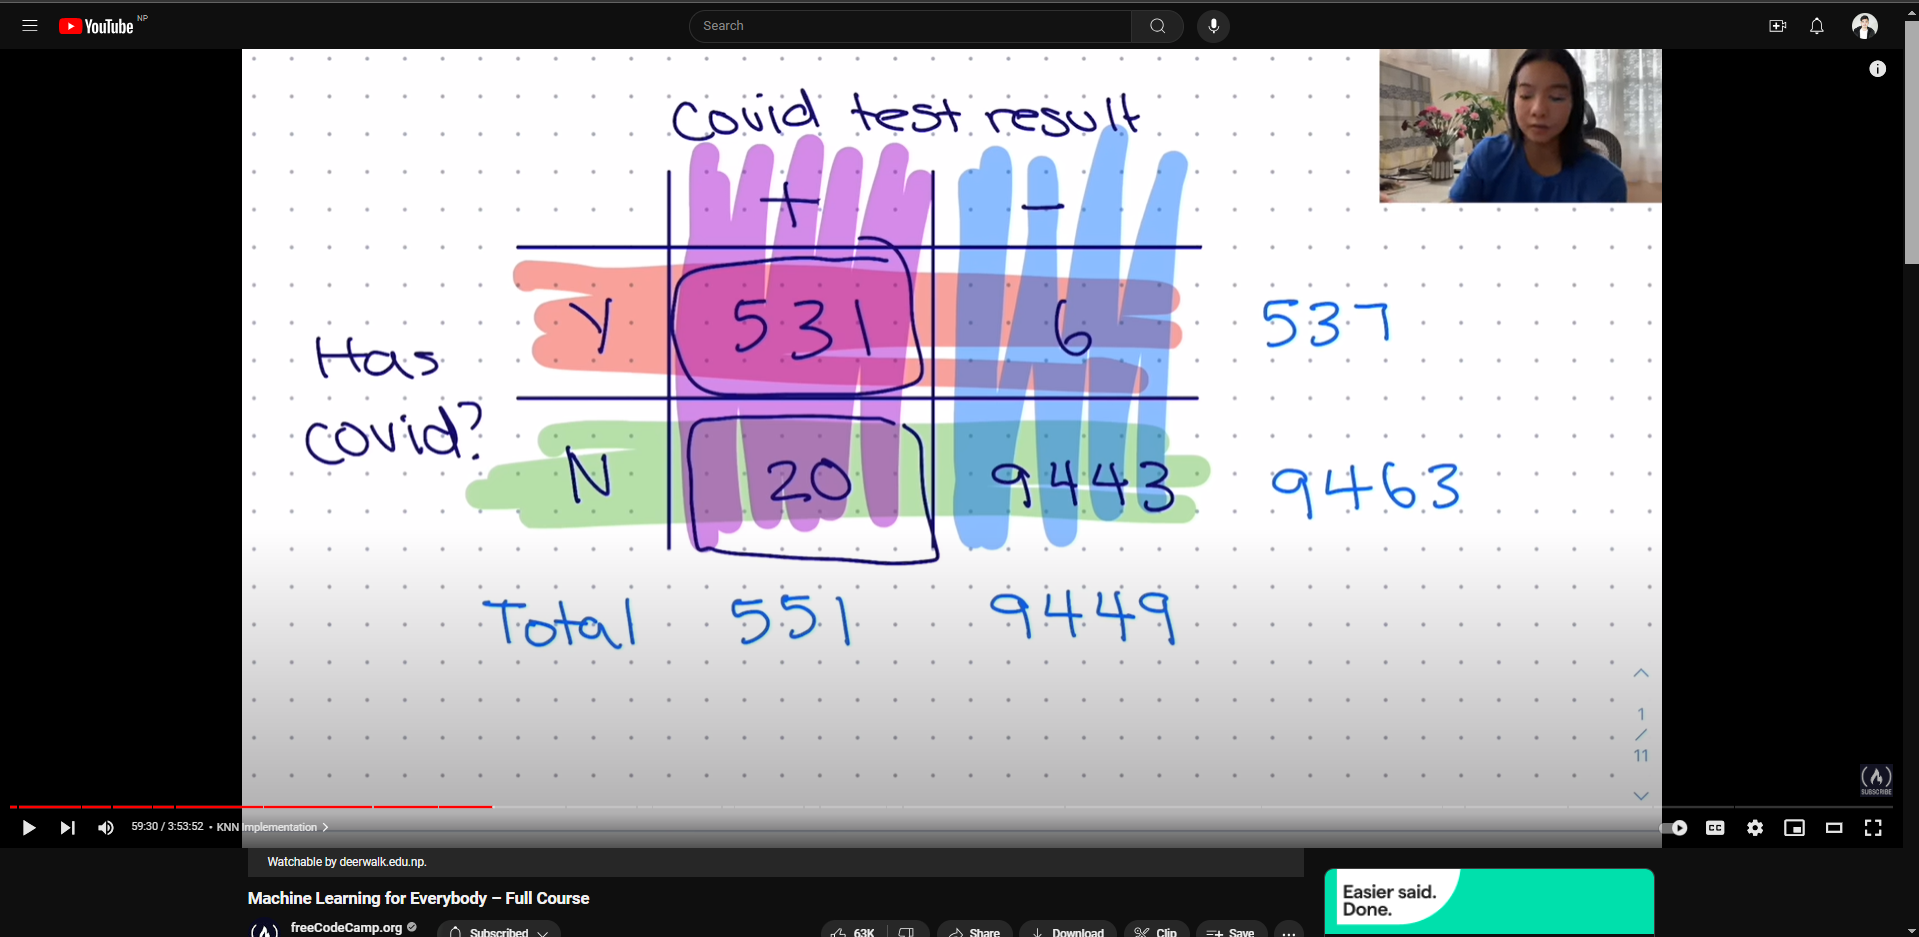 YouTube NP
Search
Covid test result
+ −
Y 531 6 537
Has
covid?
N 20 9443 9463
Total 551 9449
1
/
11
SUBSCRIBE
59:30 / 3:53:52 • KNN Implementation
CC
Watchable by deerwalk.edu.np.
Machine Learning for Everybody – Full Course
freeCodeCamp.org
Subscribed
63K
Share
Download
Clip
Save
Easier said.
Done.